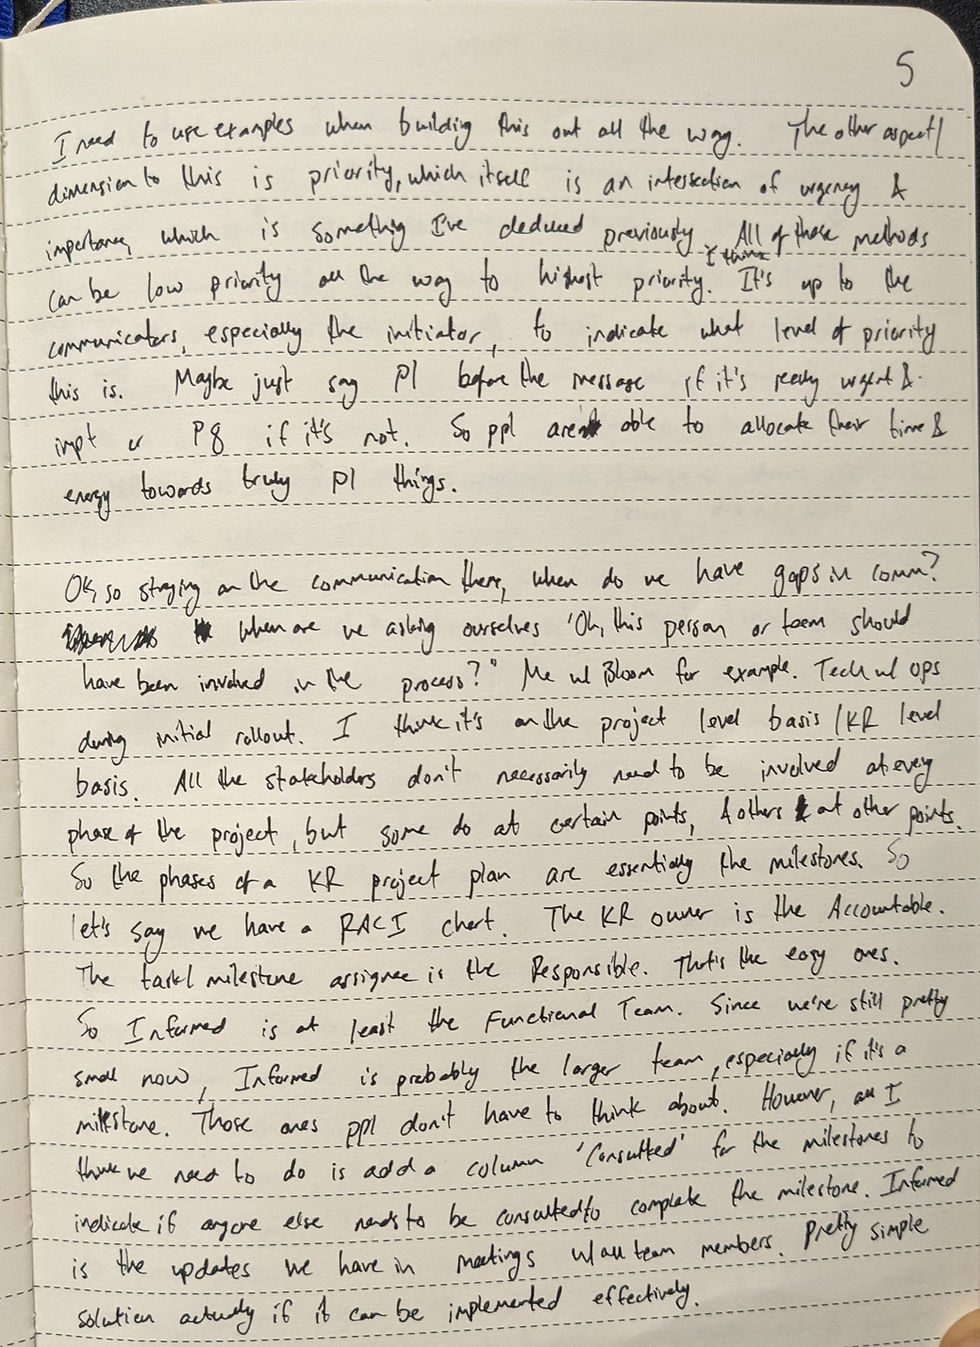 5
I need to use examples when building this out all the way. The other aspect/
dimension to this is priority, which itself is an intersection of urgency &
importance, which is something I've deduced previously. All of those methods
I think
can be low priority all the way to highest priority. It's up to the
communicators, especially the initiator, to indicate what level of priority
this is. Maybe just say P1 before the message if it's really urgent &
impt or P8 if it's not. So ppl are able to allocate their time &
energy towards truly P1 things.
Ok, so staying on the communication theme, when do we have gaps in comm?
When are we asking ourselves 'Oh, this person or team should
have been involved in the process?" Me w/ Bloom for example. Tech w/ ops
during initial rollout. I think it's on the project level basis / KR level
basis. All the stakeholders don't necessarily need to be involved at every
phase of the project, but some do at certain points, & others at other points.
So the phases of a KR project plan are essentially the milestones. So
let's say we have a RACI chart. The KR owner is the Accountable.
The task/milestone assignee is the Responsible. That's the easy ones.
So Informed is at least the Functional Team. Since we're still pretty
small now, Informed is probably the larger team, especially if it's a
milestone. Those ones ppl don't have to think about. However, all I
think we need to do is add a column 'Consulted' for the milestones to
indicate if anyone else needs to be consulted to complete the milestone. Informed
is the updates we have in meetings w/ all team members. Pretty simple
solution actually if it can be implemented effectively.